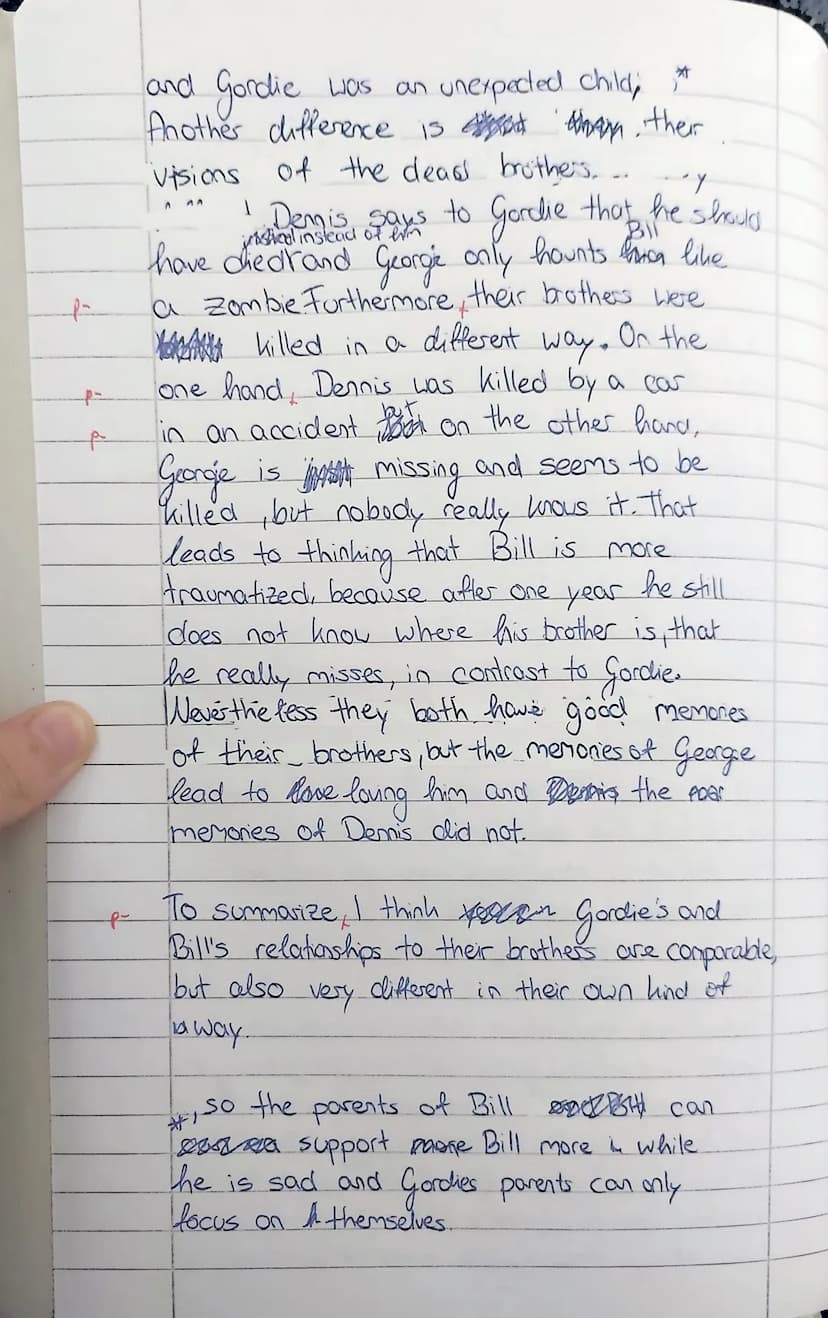 and Gordie was an unexpected child; *
Another difference is their
visions of the dead brothers...
Dennis says to Gordie that he should
instead of him
Bill
have died and George only haunts like
p- a zombie. Furthermore, their brothers were
killed in a different way. On the
p- one hand, Dennis was killed by a car
but
p- in an accident on the other hand,
George is missing and seems to be
killed, but nobody really knows it. That
leads to thinking that Bill is more
traumatized, because after one year he still
does not know where his brother is, that
he really misses, in contrast to Gordie.
Nevertheless they both have good memories
of their brothers, but the memories of George
lead to loving him and the
memories of Dennis did not.
p- To summarize, I think Gordie's and
Bill's relationships to their brothers are comparable,
but also very different in their own kind of
a way.
*, so the parents of Bill can
support Bill more while
he is sad and Gordies parents can only
focus on themselves.